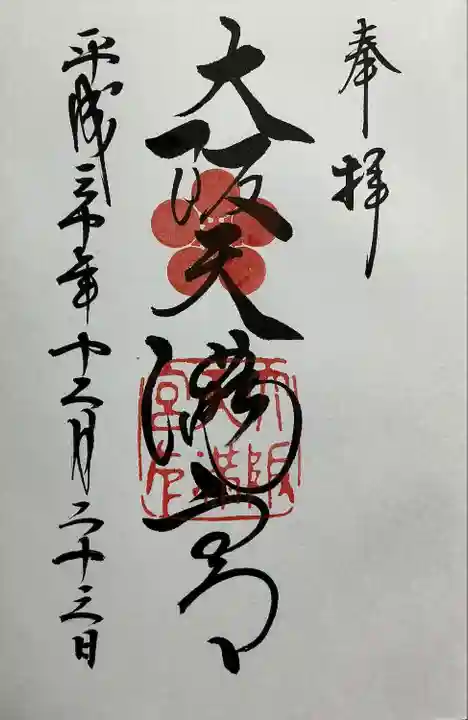 奉拝
大阪天満宮
平成三十年十二月二十三日
大阪
天満
宮印